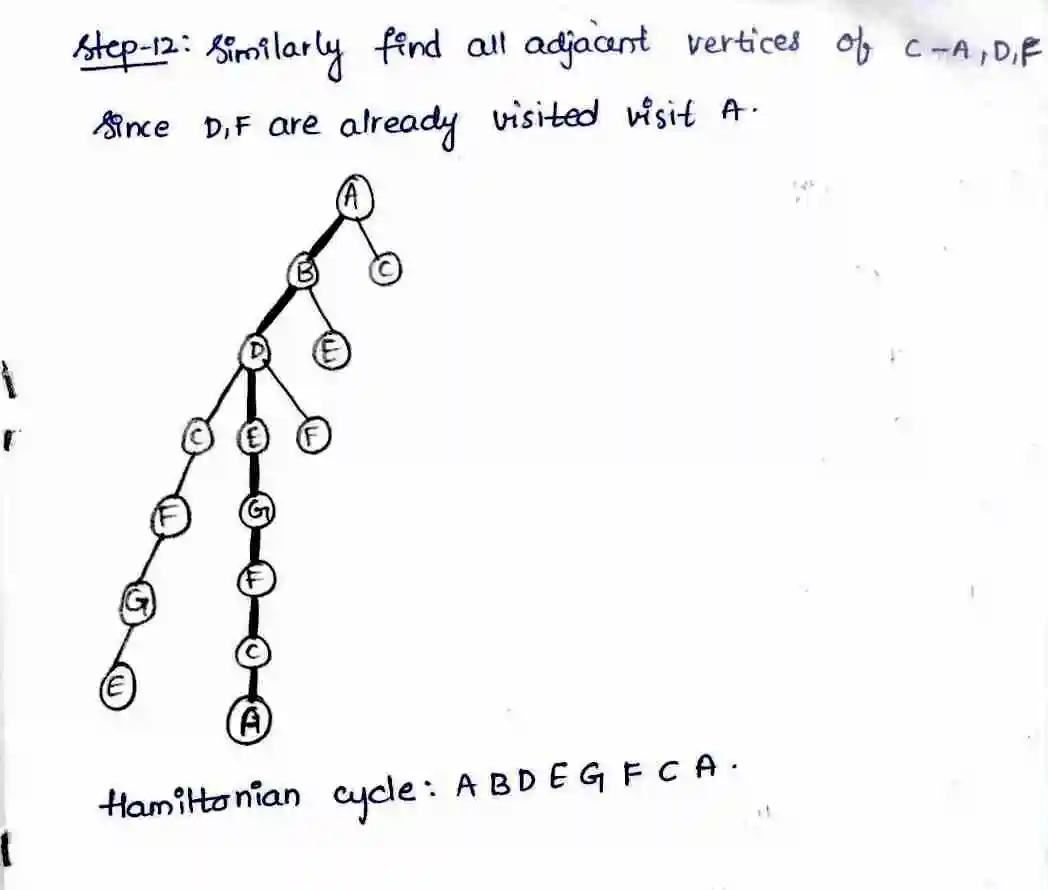 Step-12: Similarly find all adjacent vertices of C-A,D,F
Since D,F are already visited visit A.
A
B C
D E
C E F
F G
G F
E C
A
Hamiltonian cycle: A B D E G F C A.